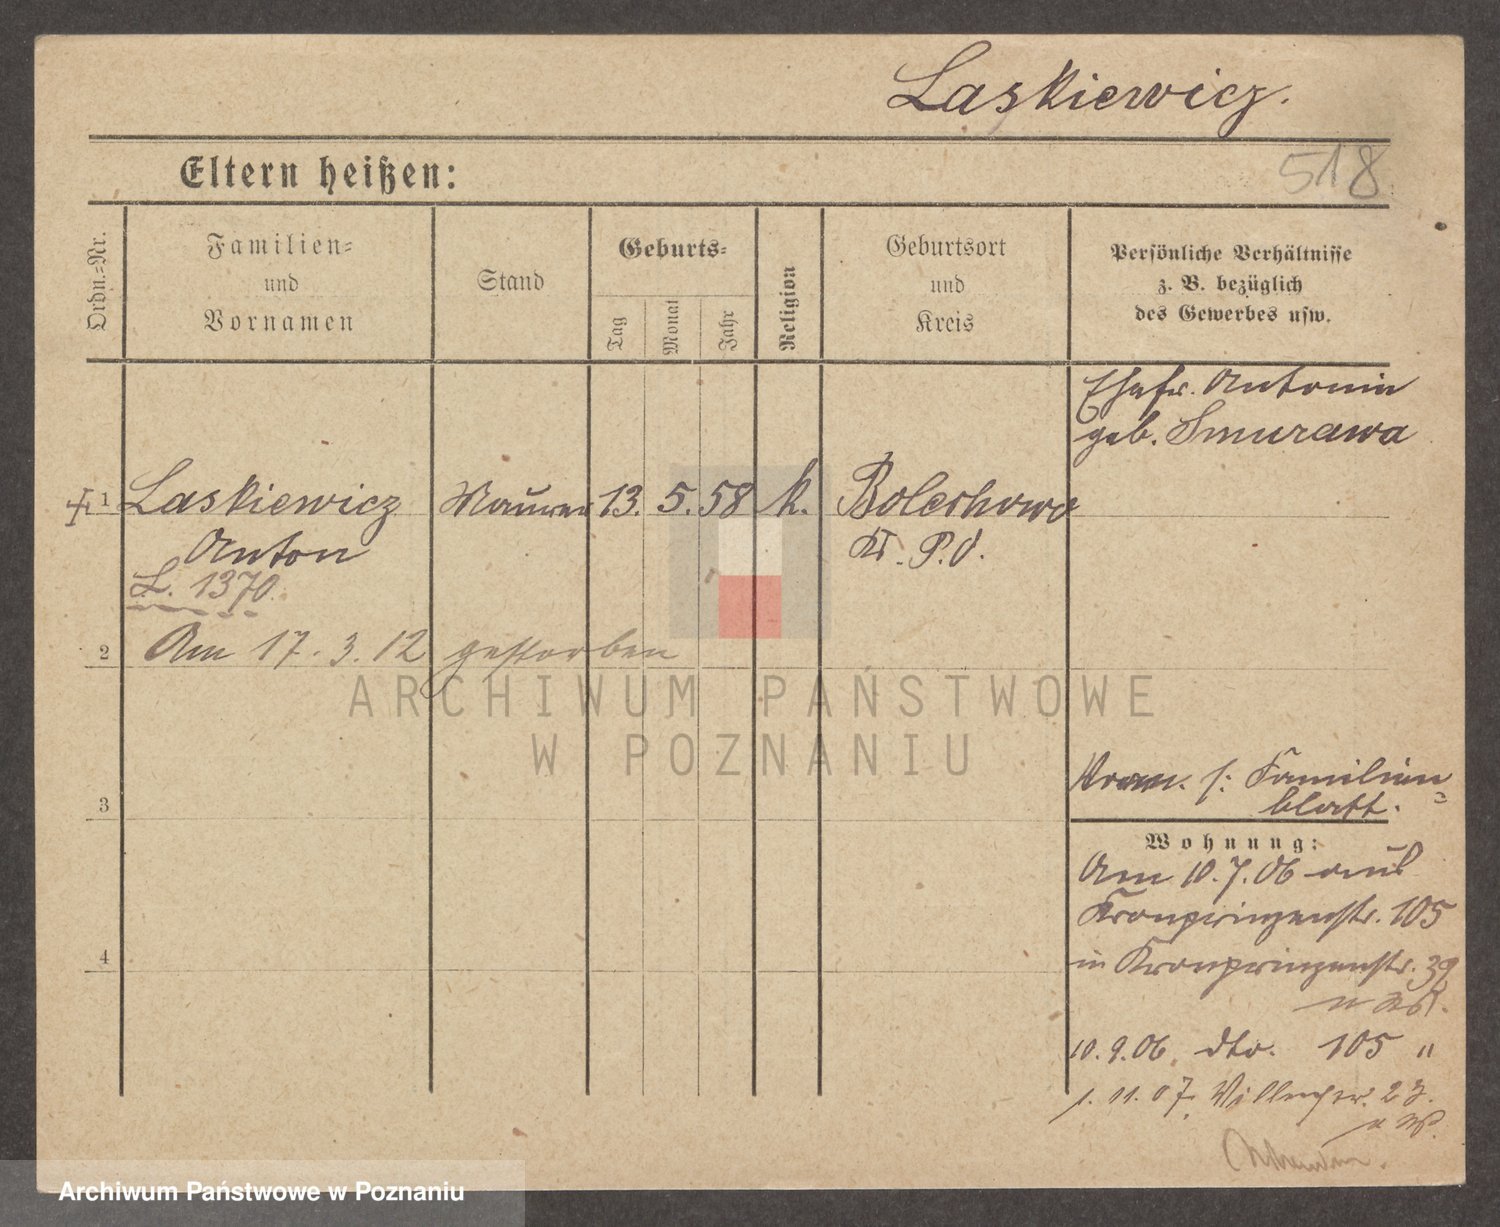 Laskiewicz.
518
Eltern heißen:
Ordn.=Nr.
Familien=
und
Vornamen
Stand
Geburts=
Tag
Monat
Jahr
Religion
Geburtsort
und
Kreis
Persönliche Verhältnisse
z. B. bezüglich
des Gewerbes usw.
Ehefr. Antonin
geb. Smurawa
1 Laskiewicz Maurer 13. 5. 58 k. Bolechowo
Anton Kr. P.O.
L. 1370.
2 Am 17. 3. 12 gestorben
ARCHIWUM PAŃSTWOWE
W POZNANIU
s: Familien=
blatt.
3
Wohnung:
Am 10.7.06 aus
Kronprinzenstr. 105
4
in Kronprinzenstr. 39
10.9.06 dto. 105 "
1. 11. 07. 23.
Archiwum Państwowe w Poznaniu